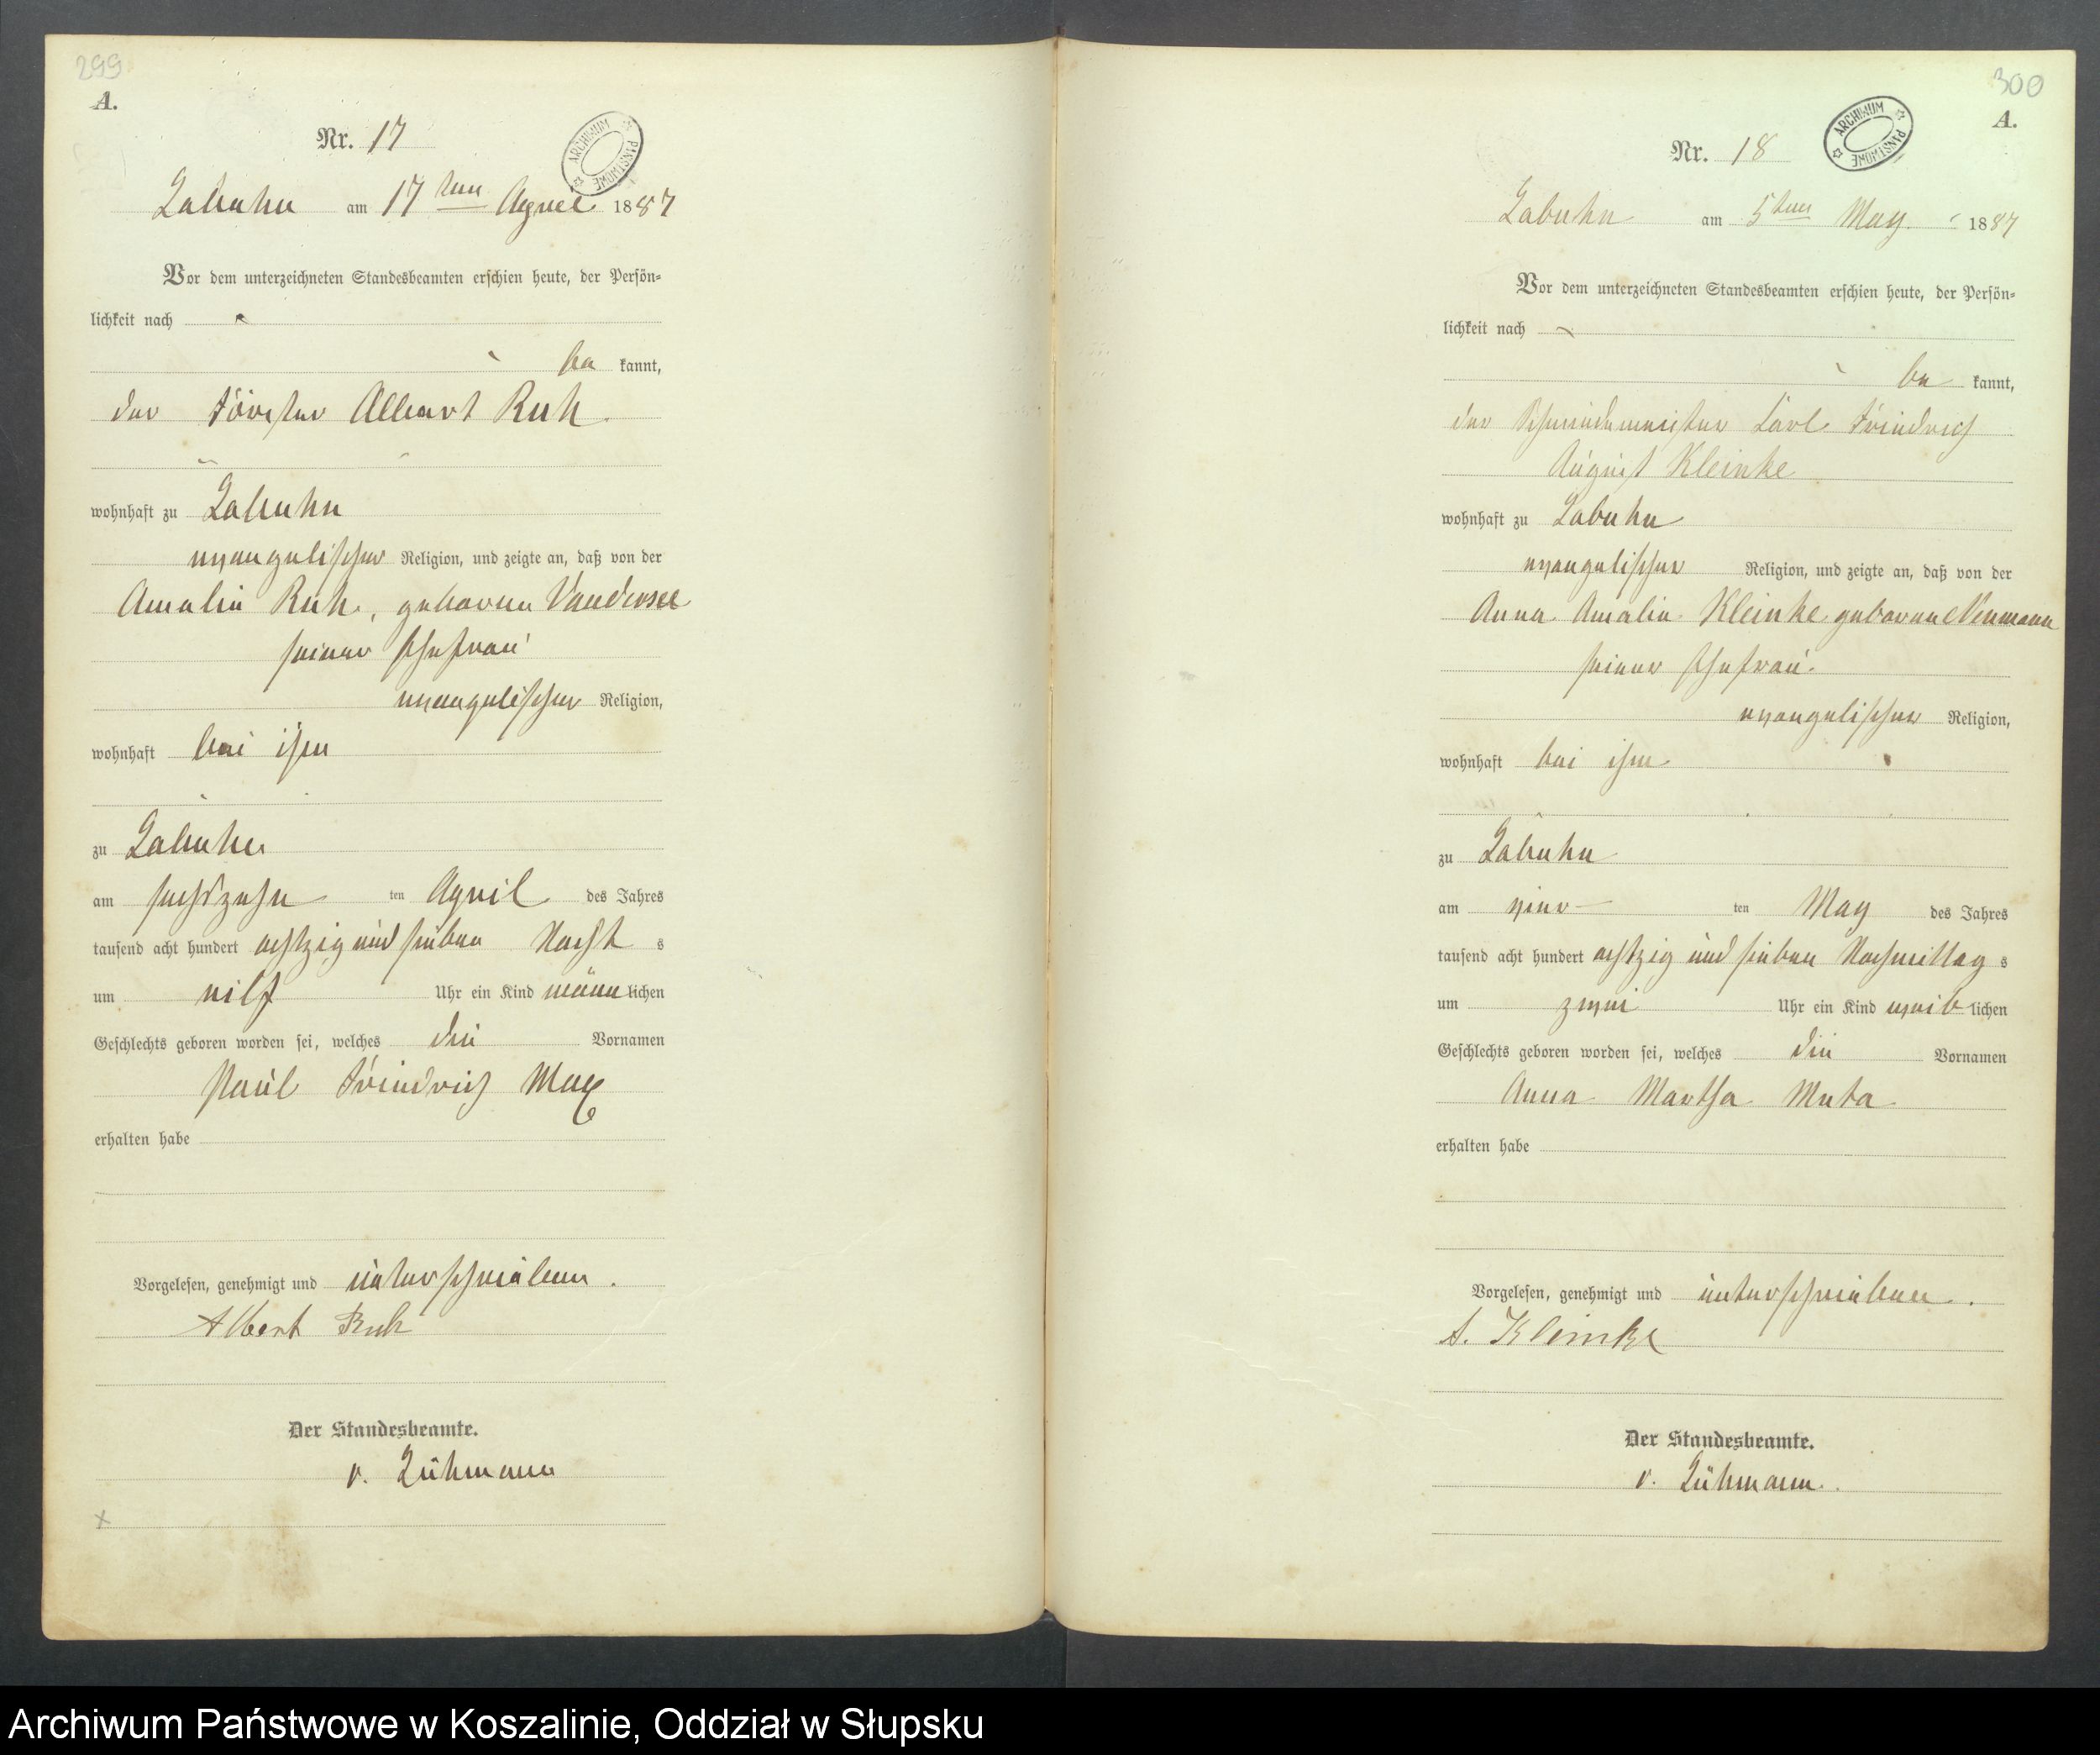 299
A.
Nr. 17
ARCHIWUM PAŃSTWOWE
Labuhn am 17ten April 1887
Vor dem unterzeichneten Standesbeamten erschien heute, der Persön-
lichkeit nach
be kannt,
der Förster Albert Ruh
wohnhaft zu Labuhn
evangelischer Religion, und zeigte an, daß von der
Amalie Ruh, geborene Vandersee
seiner Ehefrau
evangelischer Religion,
wohnhaft bei ihm
zu Labuhn
am sechszehn ten April des Jahres
tausend acht hundert achtzig und sieben Nacht s
um elf Uhr ein Kind männ lichen
Geschlechts geboren worden sei, welches die Vornamen
Paul Friedrich Max
erhalten habe
Vorgelesen, genehmigt und unterschrieben.
Albert Ruh
Der Standesbeamte.
v. Lühmann
300
A.
Nr. 18
ARCHIWUM PAŃSTWOWE
Labuhn am 5ten May 1887
Vor dem unterzeichneten Standesbeamten erschien heute, der Persön-
lichkeit nach
be kannt,
der Schmiedemeister Carl Friedrich
August Kleinke
wohnhaft zu Labuhn
evangelischer Religion, und zeigte an, daß von der
Anna Amalie Kleinke geborene Neumann
seiner Ehefrau
evangelischer Religion,
wohnhaft bei ihm
zu Labuhn
am vier ten May des Jahres
tausend acht hundert achtzig und sieben Nachmittag s
um zwei Uhr ein Kind weib lichen
Geschlechts geboren worden sei, welches die Vornamen
Anna Martha Meta
erhalten habe
Vorgelesen, genehmigt und unterschrieben.
A. Kleinke
Der Standesbeamte.
v. Lühmann.
Archiwum Państwowe w Koszalinie, Oddział w Słupsku